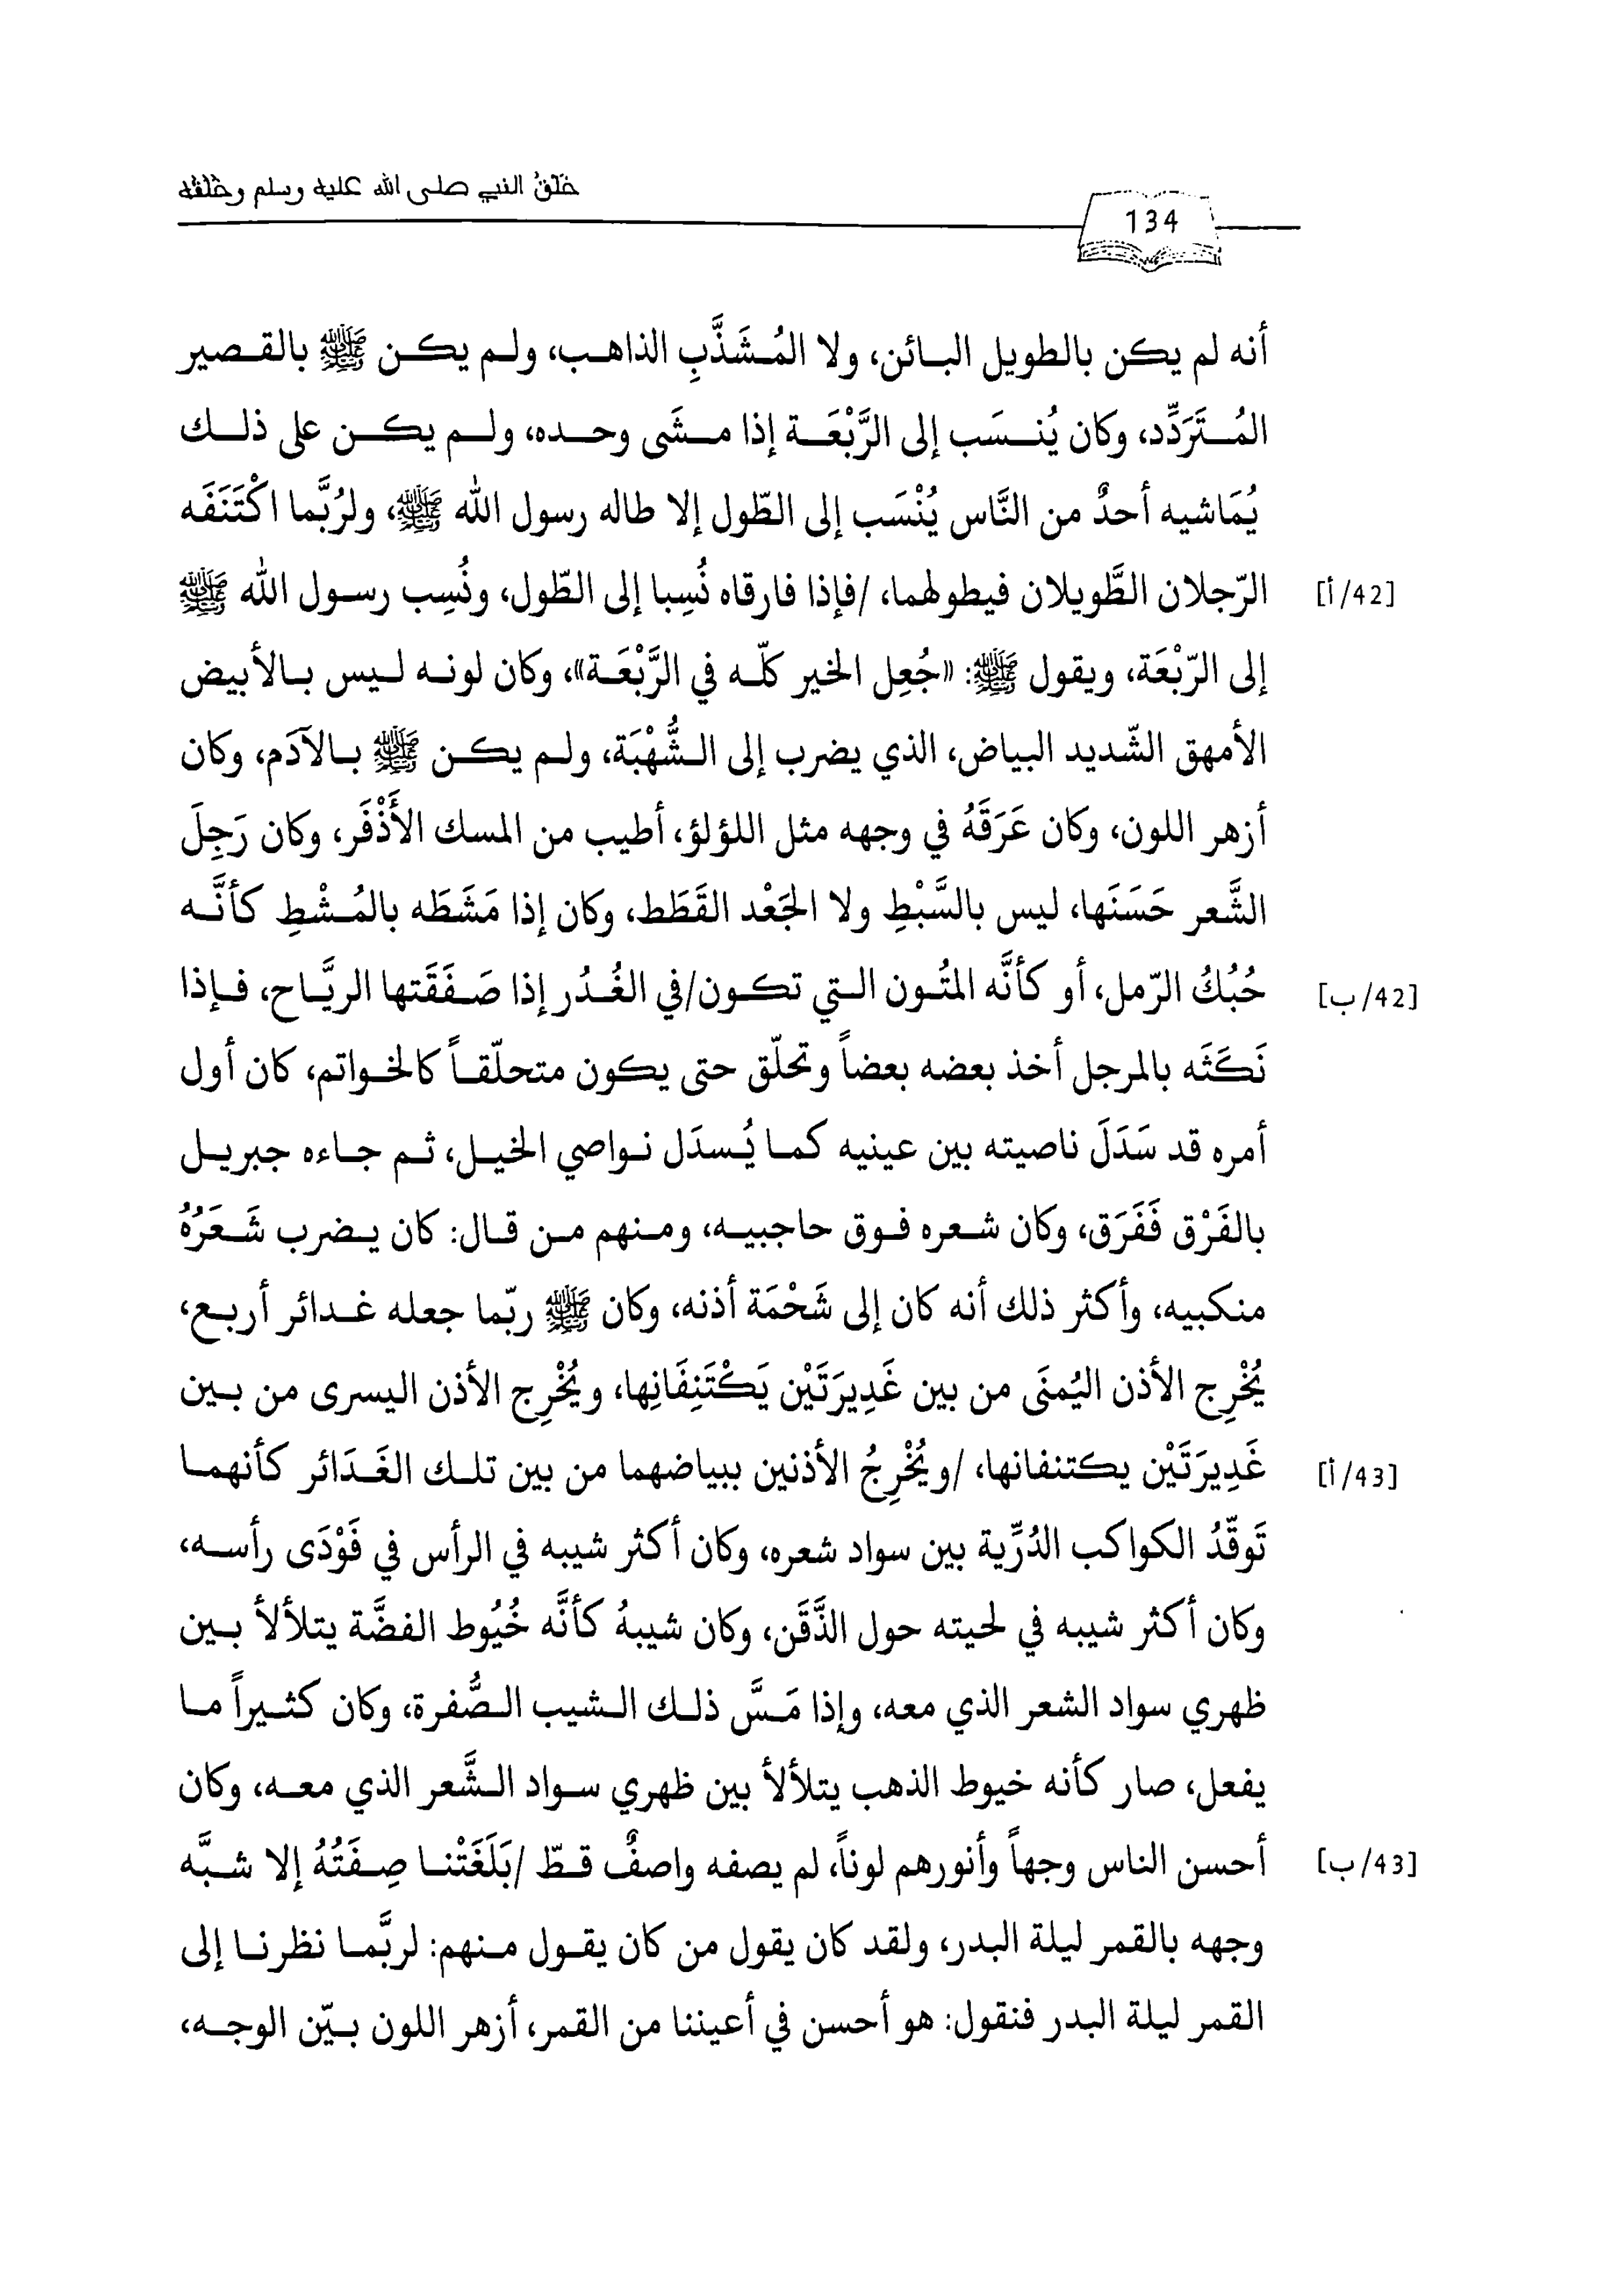 خَلْقُ النبي صلى الله عليه وسلم وخُلُقُه
134
أنه لم يكن بالطويل البائن، ولا المُشَذَّبِ الذاهب، ولم يكن ﷺ بالقصير
المُتَرَدِّد، وكان يُنسَب إلى الرَّبْعَة إذا مشَى وحده، ولم يكن على ذلك
يُمَاشيه أحدٌ من النَّاس يُنْسَب إلى الطّول إلا طاله رسول الله ﷺ، ولرُبَّما اكْتَنَفَه
الرّجلان الطَّويلان فيطولهما، /فإذا فارقاه نُسِبا إلى الطّول، ونُسِب رسول الله ﷺ [42/أ]
إلى الرّبْعَة، ويقول ﷺ: «جُعِل الخير كلّه في الرَّبْعَة»، وكان لونه ليس بالأبيض
الأمهق الشّديد البياض، الذي يضرب إلى الشُّهْبَة، ولم يكن ﷺ بالآدَم، وكان
أزهر اللون، وكان عَرَقَهُ في وجهه مثل اللؤلؤ، أطيب من المسك الأَذْفَر، وكان رَجِلَ
الشَّعر حَسَنَها، ليس بالسَّبْطِ ولا الجَعْد القَطَط، وكان إذا مَشَطَه بالمُشْطِ كأنَّه
حُبُكُ الرّمل، أو كأنَّه المتُون التي تكون/في الغُدُر إذا صَفَقَتها الريَّاح، فإذا [42/ب]
نَكَثَه بالمرجل أخذ بعضه بعضاً وتحلّق حتى يكون متحلّقاً كالخواتم، كان أول
أمره قد سَدَلَ ناصيته بين عينيه كما يُسدَل نواصي الخيل، ثم جاءه جبريل
بالفَرْق فَفَرَق، وكان شعره فوق حاجبيه، ومنهم من قال: كان يضرب شَعَرُهُ
منكبيه، وأكثر ذلك أنه كان إلى شَحْمَة أذنه، وكان ﷺ ربّما جعله غدائر أربع،
يُخْرِج الأذن اليُمنَى من بين غَدِيرَتَيْن يَكْتَنِفَانِها، ويُخْرِج الأذن اليسرى من بين
غَدِيرَتَيْن يكتنفانها، /ويُخْرِجُ الأذنين ببياضهما من بين تلك الغَدَائر كأنهما [43/أ]
تَوقّدُ الكواكب الدُرِّية بين سواد شعره، وكان أكثر شيبه في الرأس في فَوْدَى رأسه،
وكان أكثر شيبه في لحيته حول الذَّقَن، وكان شيبهُ كأنَّه خُيُوط الفضَّة يتلألأ بين
ظهري سواد الشعر الذي معه، وإذا مَسَّ ذلك الشيب الصُّفرة، وكان كثيراً ما
يفعل، صار كأنه خيوط الذهب يتلألأ بين ظهري سواد الشَّعر الذي معه، وكان
أحسن الناس وجهاً وأنورهم لوناً، لم يصفه واصفٌ قطّ /بَلَغَتْنا صِفَتُهُ إلا شبَّه [43/ب]
وجهه بالقمر ليلة البدر، ولقد كان يقول من كان يقول منهم: لربَّما نظرنا إلى
القمر ليلة البدر فنقول: هو أحسن في أعيننا من القمر، أزهر اللون بيّن الوجه،